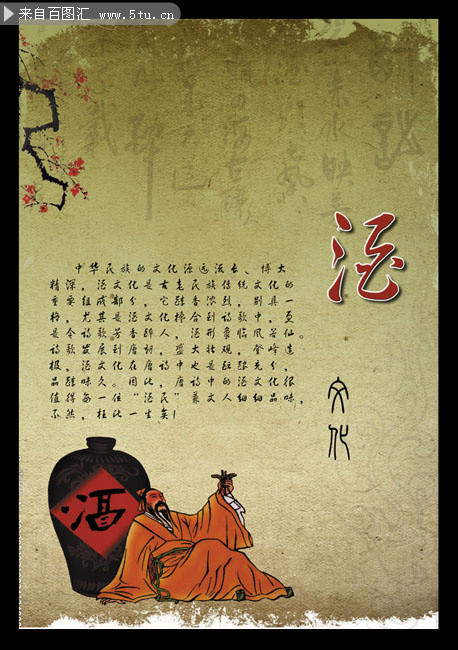 来自百图汇 www.5tu.cn
酒
文化
中华民族的文化源远流长、博大
精深,酒文化是古老民族传统文化的
重要组成部分,它醇香浓烈,别具一
格,尤其是酒文化糅合到诗歌中,更
是令诗歌芳香醉人,酒形象临风若仙。
诗歌发展到唐朝,盛大壮观,登峰造
极,酒文化在唐诗中也是充分,
品味久。因此,唐诗中的酒文化很
值得每一位“酒民”兼文人细细品味,
不然,枉此一生矣!
酒